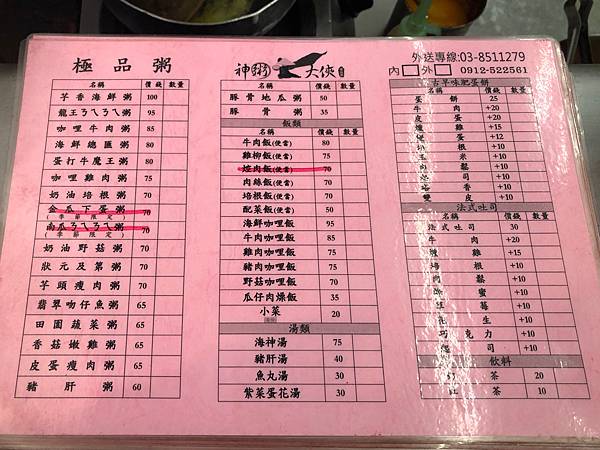 極品粥
名稱 價錢 數量
芋香海鮮粥 100
龍王ㄋㄟㄋㄟ粥 95
咖哩牛肉粥 85
海鮮總匯粥 80
蛋打牛魔王粥 80
咖哩雞肉粥 75
奶油培根粥 70
金瓜下蛋粥 70
(季節限定)
南瓜ㄋㄟㄋㄟ粥 70
(季節限定)
奶油野菇粥 70
狀元及第粥 70
芋頭瘦肉粥 70
翡翠吻仔魚粥 65
田園蔬菜粥 65
香菇嫩雞粥 65
皮蛋瘦肉粥 65
豬肝粥 60
神粥大俠
名稱 價錢 數量
豚骨地瓜粥 50
豚骨粥 35
飯類
名稱 價錢 數量
牛肉飯(便當) 80
雞柳飯(便當) 75
焢肉飯(便當) 70
肉絲飯(便當) 70
培根飯(便當) 70
配菜飯(便當) 50
海鮮咖哩飯 90
牛肉咖哩飯 85
雞肉咖哩飯 75
豬肉咖哩飯 75
野菇咖哩飯 70
瓜仔肉燥飯 35
小菜 20
湯類
海神湯 75
豬肝湯 40
魚丸湯 30
紫菜蛋花湯 30
外送專線:03-8511279
內 外 0912-522561
古早味肥蛋餅
名稱 價錢 數量
蛋餅 25
牛肉 +20
皮蛋 +20
燻雞 +15
+12
+10
玉米 +10
肉鬆 +10
起司 +10
+10
+10
法式吐司
名稱 價錢 數量
法式吐司 30
牛肉 +20
燻雞 +15
培根 +10
肉鬆 +10
蜜 +10
莓 +10
花生 +10
巧克力 +10
起司 +10
飲料
茶 20
紅茶 10